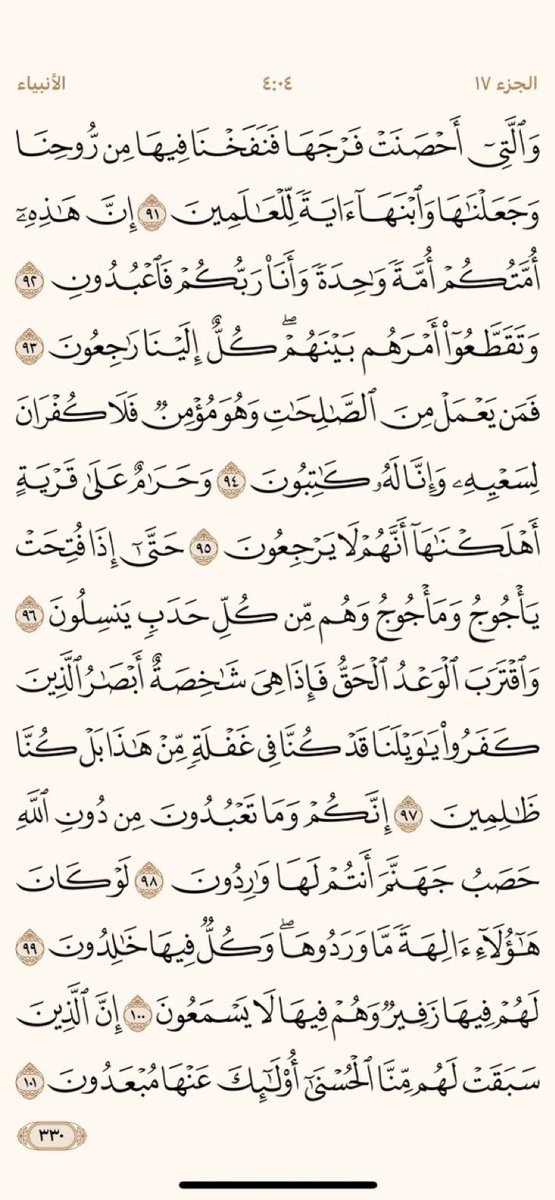 الجزء ١٧ ٤:٠٤ الأنبياء
وَٱلَّتِىٓ أَحْصَنَتْ فَرْجَهَا فَنَفَخْنَا فِيهَا مِن رُّوحِنَا
وَجَعَلْنَٰهَا وَٱبْنَهَآ ءَايَةً لِّلْعَٰلَمِينَ ٩١ إِنَّ هَٰذِهِۦٓ
أُمَّتُكُمْ أُمَّةً وَٰحِدَةً وَأَنَا۠ رَبُّكُمْ فَٱعْبُدُونِ ٩٢
وَتَقَطَّعُوٓا۟ أَمْرَهُم بَيْنَهُمْ ۖ كُلٌّ إِلَيْنَا رَٰجِعُونَ ٩٣
فَمَن يَعْمَلْ مِنَ ٱلصَّٰلِحَٰتِ وَهُوَ مُؤْمِنٌ فَلَا كُفْرَانَ
لِسَعْيِهِۦ وَإِنَّا لَهُۥ كَٰتِبُونَ ٩٤ وَحَرَٰمٌ عَلَىٰ قَرْيَةٍ
أَهْلَكْنَٰهَآ أَنَّهُمْ لَا يَرْجِعُونَ ٩٥ حَتَّىٰٓ إِذَا فُتِحَتْ
يَأْجُوجُ وَمَأْجُوجُ وَهُم مِّن كُلِّ حَدَبٍ يَنسِلُونَ ٩٦
وَٱقْتَرَبَ ٱلْوَعْدُ ٱلْحَقُّ فَإِذَا هِىَ شَٰخِصَةٌ أَبْصَٰرُ ٱلَّذِينَ
كَفَرُوا۟ يَٰوَيْلَنَا قَدْ كُنَّا فِى غَفْلَةٍ مِّنْ هَٰذَا بَلْ كُنَّا
ظَٰلِمِينَ ٩٧ إِنَّكُمْ وَمَا تَعْبُدُونَ مِن دُونِ ٱللَّهِ
حَصَبُ جَهَنَّمَ أَنتُمْ لَهَا وَٰرِدُونَ ٩٨ لَوْ كَانَ
هَٰٓؤُلَآءِ ءَالِهَةً مَّا وَرَدُوهَا ۖ وَكُلٌّ فِيهَا خَٰلِدُونَ ٩٩
لَهُمْ فِيهَا زَفِيرٌ وَهُمْ فِيهَا لَا يَسْمَعُونَ ١٠٠ إِنَّ ٱلَّذِينَ
سَبَقَتْ لَهُم مِّنَّا ٱلْحُسْنَىٰٓ أُو۟لَٰٓئِكَ عَنْهَا مُبْعَدُونَ ١٠١
٣٣٠